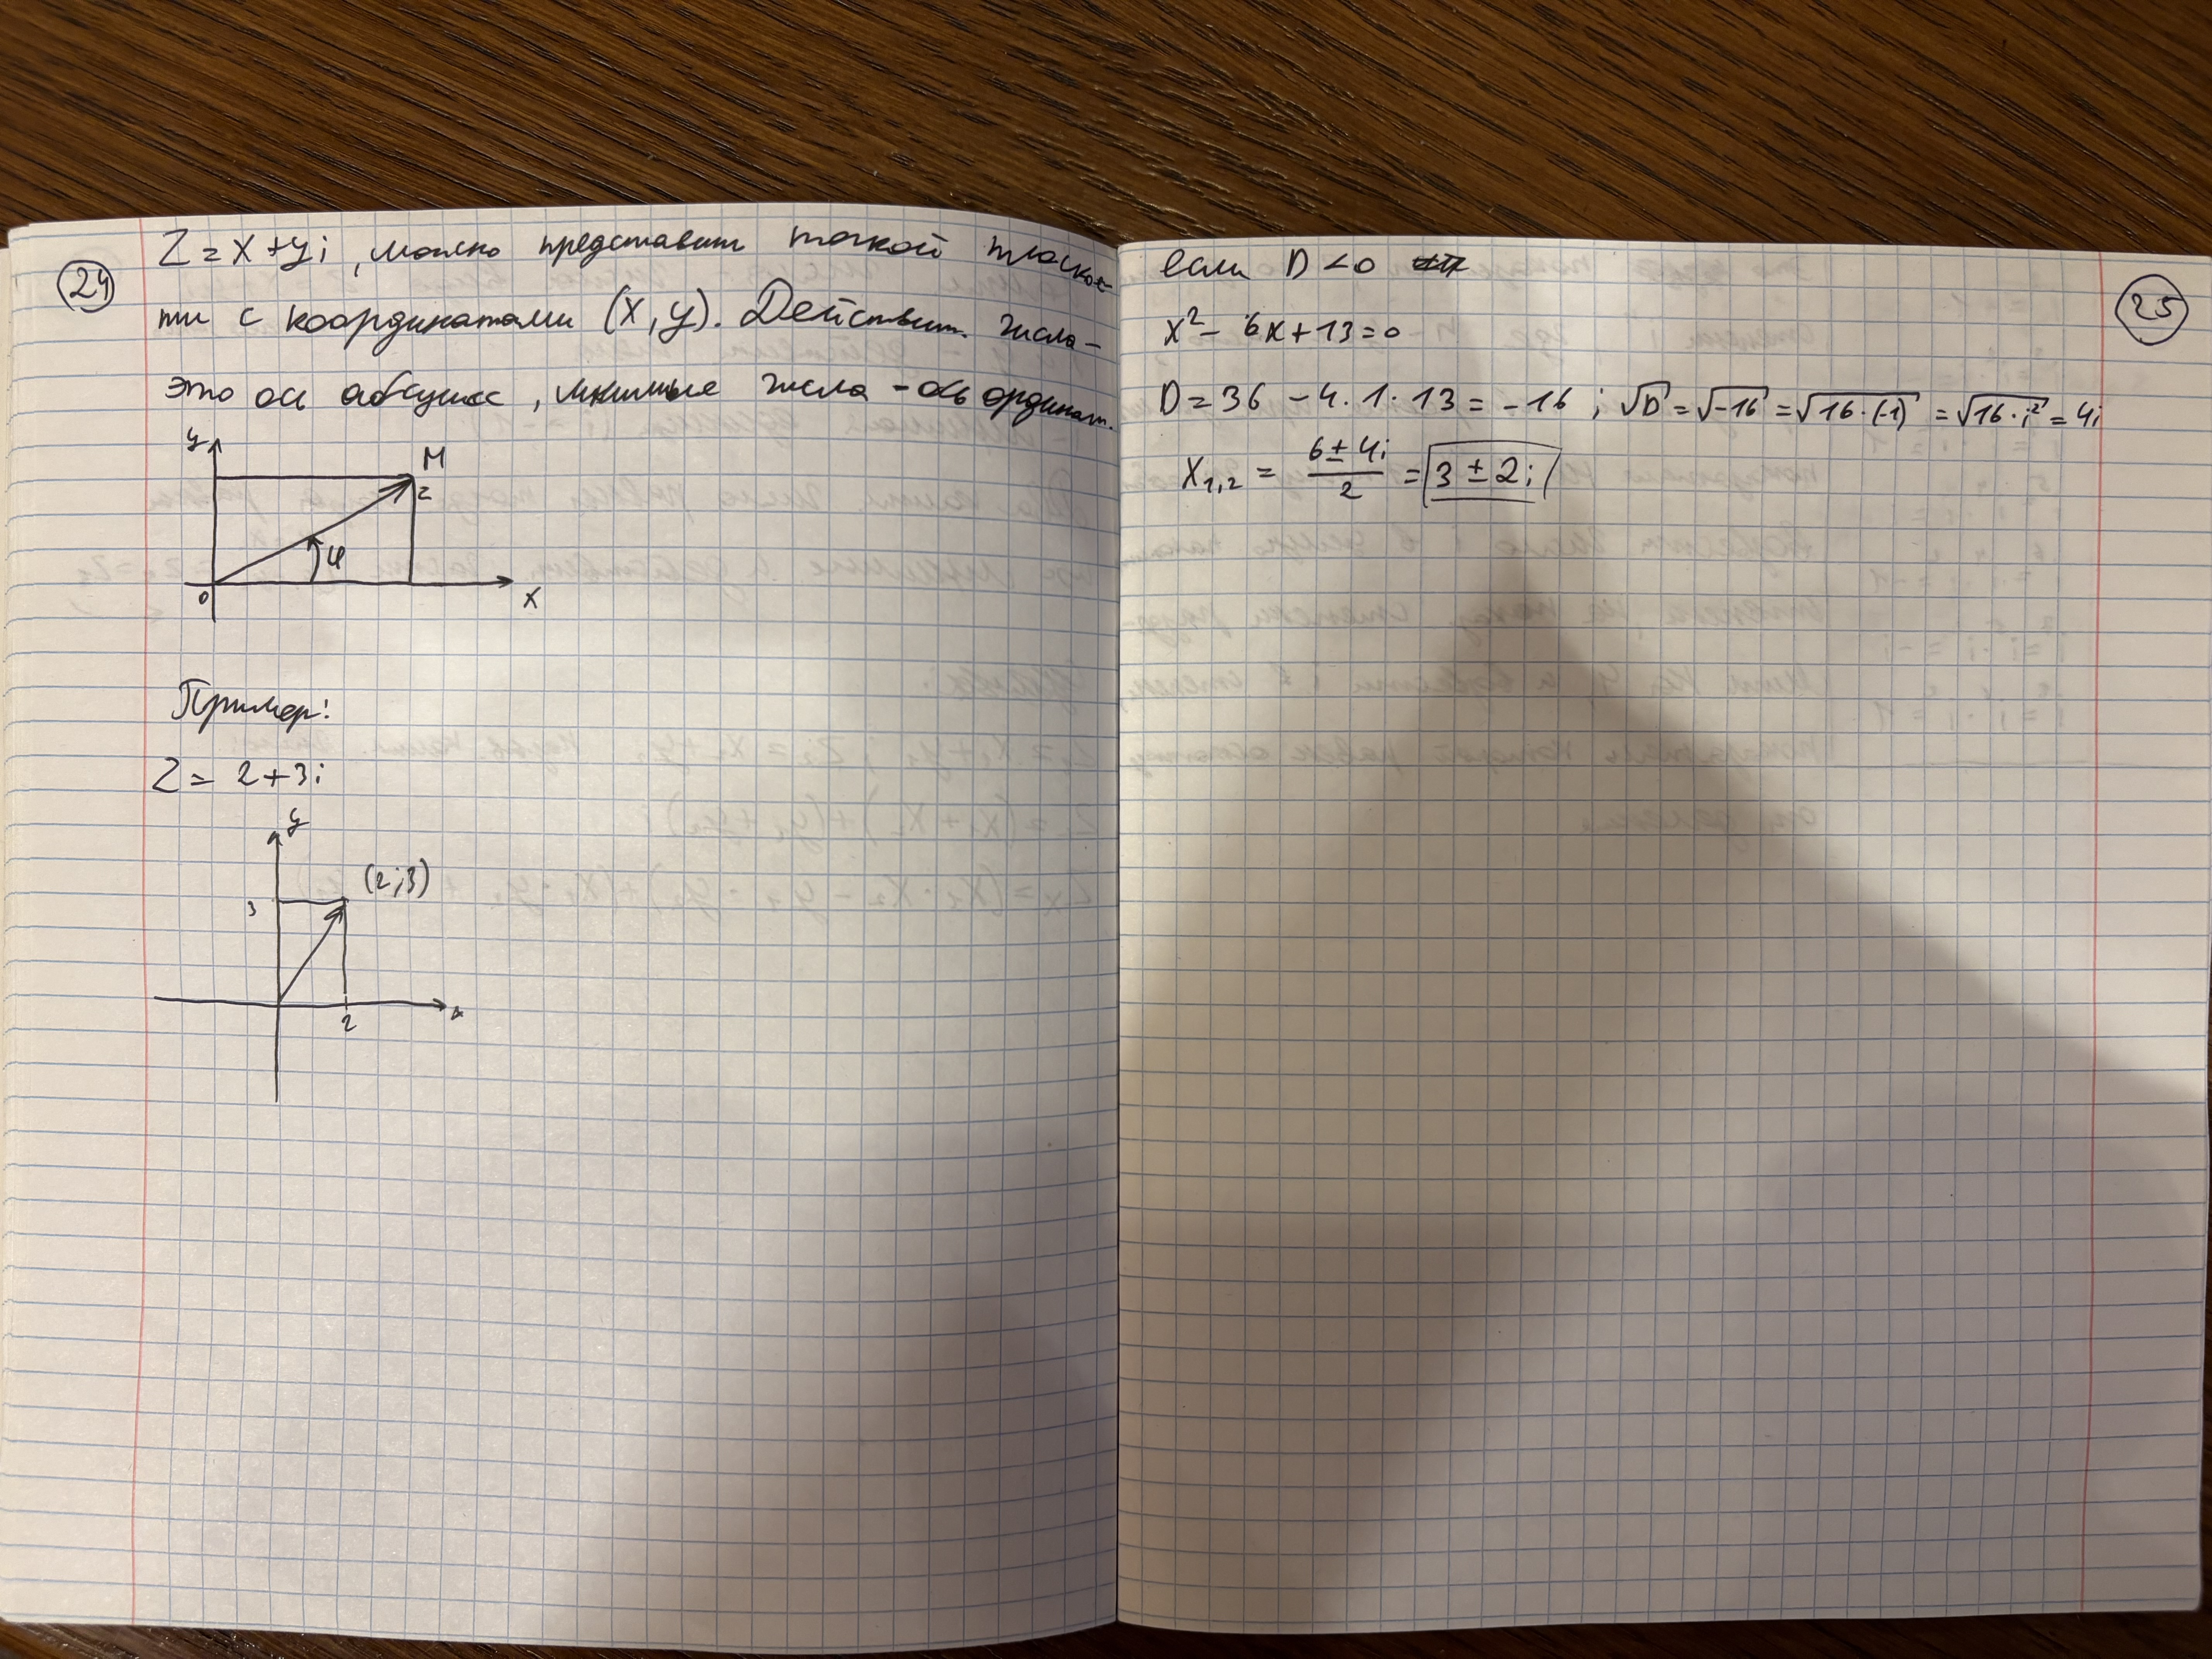 24
Z = x + yi, можно представить точкой плоскос-
ти с координатами (x, y). Действит. числа -
это ось абсцисс, мнимые числа - ось ординат.
y
M
z
φ
0
x
Пример:
Z = 2 + 3i
y
(2;3)
3
2
x
25
если D < 0
x² - 6x + 13 = 0
D = 36 - 4 · 1 · 13 = -16 ; √D = √-16 = √16 · (-1) = √16 · i² = 4i
x₁,₂ = (6 ± 4i)/2 = 3 ± 2i